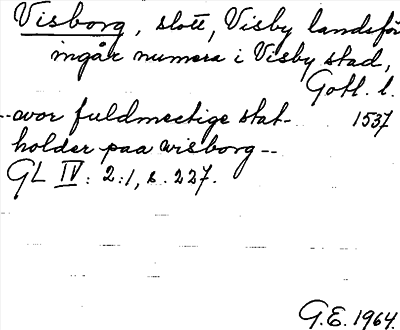 Visborg, slott, Visby landsför
ingår numera i Visby stad,
Gotl. l.
--wor fuldmectige stat- 1537
holder paa wisborg--
GL IV: 2:1, s. 227.
G.E. 1964.